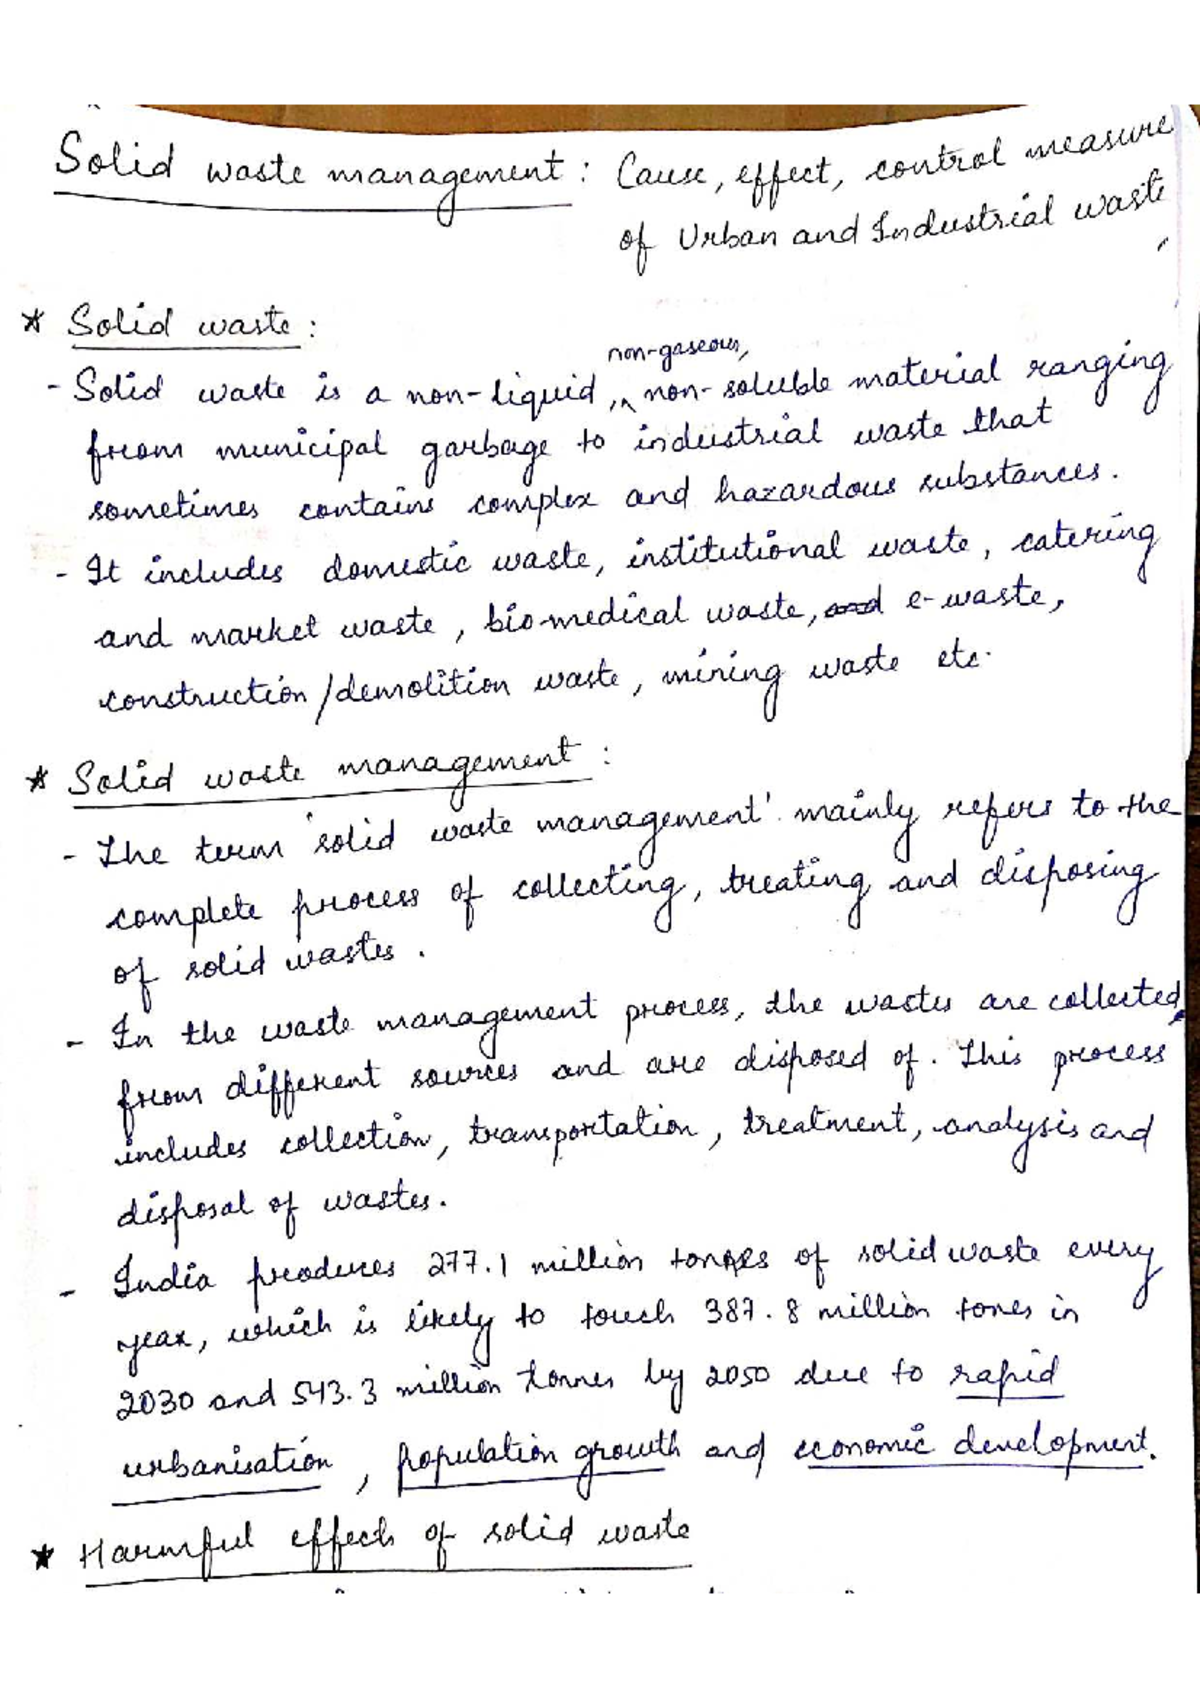 Solid waste management : Cause, effect, control measure
of Urban and Industrial waste
* Solid waste :
- Solid waste is a non-liquid, non-gaseous, non-soluble material ranging
from municipal garbage to industrial waste that
sometimes contains complex and hazardous substances.
- It includes domestic waste, institutional waste, catering
and market waste, bio-medical waste, and e-waste,
construction/demolition waste, mining waste etc.
* Solid waste management :
- The term 'solid waste management' mainly refers to the
complete process of collecting, treating and disposing
of solid wastes.
- In the waste management process, the wastes are collected
from different sources and are disposed of. This process
includes collection, transportation, treatment, analysis and
disposal of wastes.
- India produces 277.1 million tonnes of solid waste every
year, which is likely to touch 387.8 million tones in
2030 and 543.3 million tonnes by 2050 due to rapid
urbanisation, population growth and economic development.
* Harmful effects of solid waste